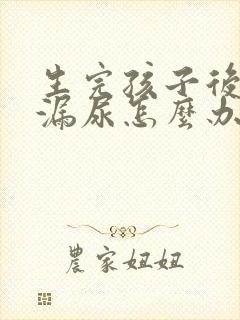 生完孩子後
漏尿怎麼办
農家妞妞